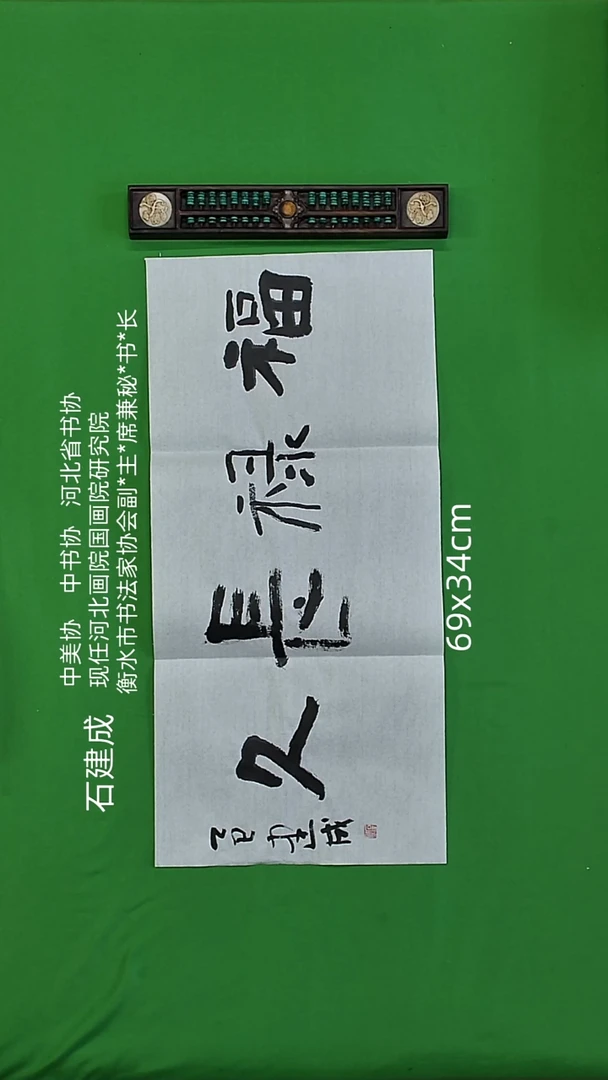 石建成
中美协 中书协 河北省书协
现任河北画院国画院研究院
衡水市书法家协会副*主*席兼秘*书*长
福禄長久
乙巳建成
69x34cm